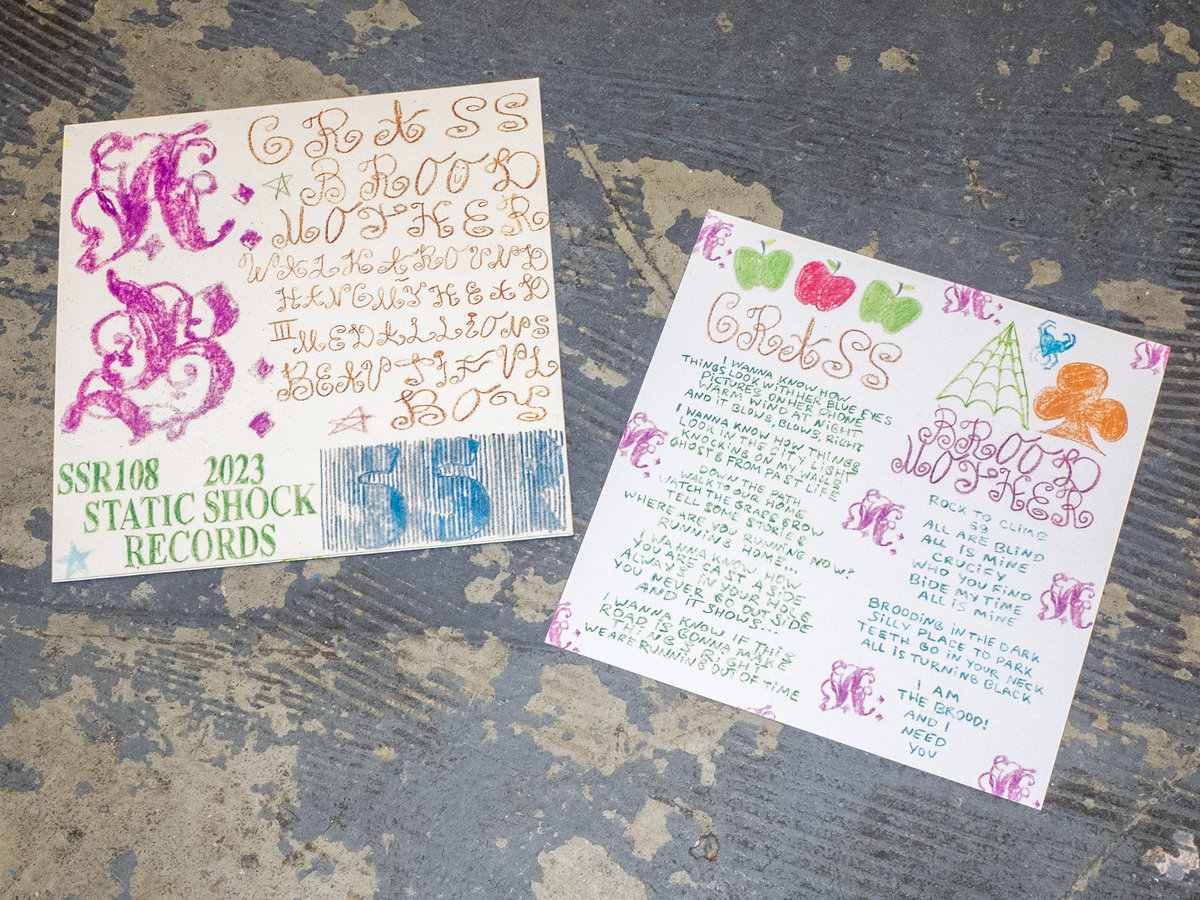 A:
GRASS
BROOD
MOTHER
WALK AROUND
HANG MY HEAD
B:
III MEDALLIONS
BEAUTIFUL
BOY
SSR108 2023
STATIC SHOCK
RECORDS
SSR
GRASS
I WANNA KNOW HOW
THINGS LOOK WITH HER BLUE EYES
PICTURES ON HER PHONE
WARM WIND AT NIGHT
AND IT BLOWS, BLOWS, RIGHT
I WANNA KNOW HOW THINGS
LOOK IN THE CITY LIGHT
KNOCKING ON MY WALLS
GHOSTS FROM PAST LIFE
DOWN THE PATH
WALK TO OUR HOME
WATCH THE GRASS GROW
TELL SOME STORIES
WHERE ARE YOU RUNNING NOW?
RUNNING HOME...
I WANNA KNOW HOW
YOU ARE CAST ASIDE
ALWAYS IN YOUR HOLE
YOU NEVER GO OUTSIDE
AND IT SHOWS...
I WANNA KNOW IF THIS
ROAD IS GONNA MAKE
THINGS RIGHT
WE ARE RUNNING OUT OF TIME
BROOD
MOTHER
ROCK TO CLIMB
SO
ALL ARE BLIND
ALL IS MINE
CRUCIFY
WHO YOU FIND
BIDE MY TIME
ALL IS MINE
BROODING IN THE DARK
SILLY PLACE TO PARK
TEETH GO IN YOUR NECK
ALL IS TURNING BLACK
I AM
THE BROOD!
AND I
NEED
YOU